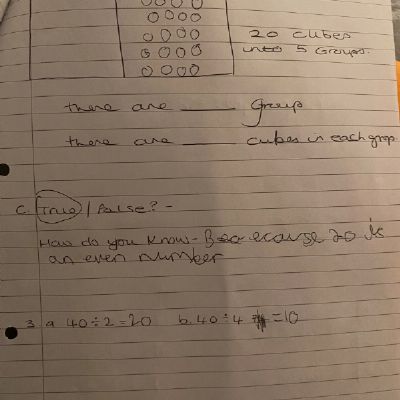 20 cubes
into 5 Groups.
there are ____ Group
there are ____ cubes in each grop
C. True / False? -
How do you know - Because 20 is
an even number
3 a 40÷2=20 b. 40÷4 =10